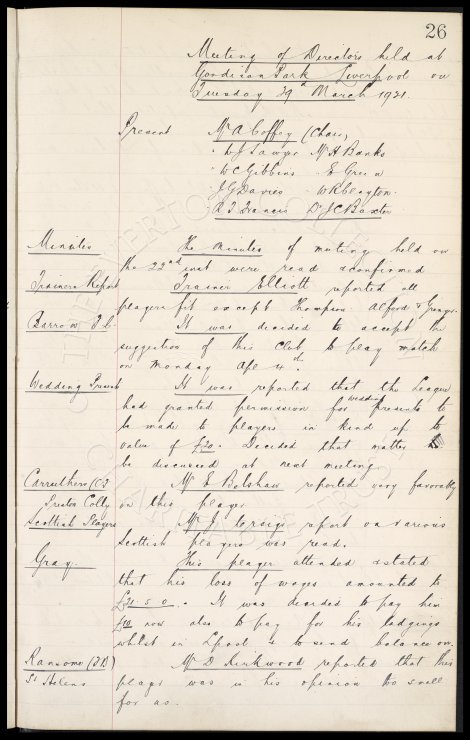 26
Meeting of Directors held at
Goodison Park Liverpool on
Tuesday 29th March 1921.
Present Mr A Coffey (Chair)
" W J Sawyer Mr H Banks
" W C Gibbins " E Green
" J G Davies " W R Clayton
A T Francis Dr J C Baxter
Minutes The Minutes of meeting held on
the 22nd inst were read & confirmed
Trainers Report Trainer Elliott reported all
players fit except Thompson Alford &
Barrow F.C. It was decided to accept the
suggestion of this Club to play match
on Monday Apl 4th.
Wedding Present It was reported that the League
had granted permission for wedding presents to
be made to players in kind up to
value of £20. Decided that matter
be discussed at next meeting
Carruthers Mr E Belshaw reported very favorably
Preston Colly on this player
Scottish Players Mr J report on various
Scottish players was read.
Gray. This player attended & stated
that his loss of wages amounted to
5 0. It was decided to pay him
£10 now also to pay for his lodgings
whilst in Lpool & to send balance on.
Ransome Mr D Kirkwood reported that this
St Helens player was in his opinion too small
for us.
THE EVERTON COLLECTION
CHARITABLE TRUST